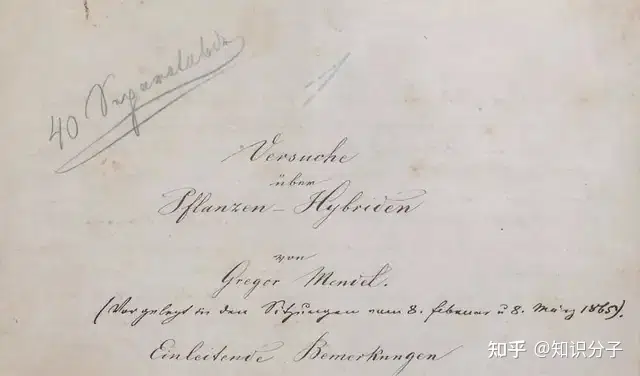 40 Separatabdr
Versuche
über
Pflanzen-Hybriden
von
Gregor Mendel.
(Vorgelegt in den Sitzungen vom 8. Februar u 8. März 1865).
Einleitende Bemerkungen
知乎 @知识分子